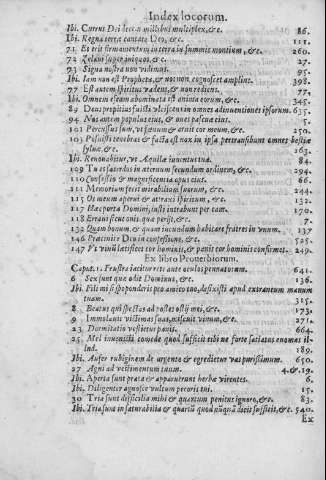 Index locorum.
Ibi. Currus Dei decem millibus multiplex, &c. 86.
Ibi. Regna terræ cantate Deo, &c. 111.
71 Et erit firmamentum in terra in summis montium, &c. 260.
72 Zelavi super iniquos, &c. 27.
73 Signa nostra non vidimus. 95.
Ibi. Iam non est Propheta, & nos non cognoscet amplius. 398.
77 Est autem spiritus vadens, & non rediens. 77.
Ibi. Omnem escam abominata est anima eorum, &c. 345.
89 Deus propitius fuisti ulciscens in omnes adinventiones ipsorum. 635.
94 Nos autem populus eius, & oves pascuæ eius. 5.
101 Percussus sum, ut fœnum & aruit cor meum, &c. 250.
103 Posuisti tenebras & facta est nox in ipsa pertransibunt omnes bestiæ
sylvæ, &c. 163.
Ibi. Renovabitur, ut Aquilæ iuventus tua. 84.
109 Tu es sacerdos in æternum secundum ordinem, &c. 294.
110 Confessio & magnificentia opus eius. 66.
111 Memoriam fecit mirabilium suorum, &c. 244.
115 Os meum aperui & attraxi spiritum, &c. 132.
117 Hæc porta Domini, iusti intrabunt per eam. 170.
118 Erravi sicut ovis quæ periit, &c. 7.
132 Quam bonum, & quam iucundum habitare fratres in unum. 137
146 Præcinite Deo in confessione, &c. 525.
147 Vt vinū lætificet cor hominis, & panis cor hominis confirmet. 249.
Ex libro Proverbiorum.
Caput. 1. Frustra iacitur rete ante oculos pennatorum. 641.
6 Sex sunt quæ odit Dominus, &c. 136.
Ibi. Fili mi si spoponderis pro amico tuo, defixisti apud extraneum manum
tuam. 315.
8 Beatus qui spectas ad postes ostij mei, &c. 173.
9 Immolavit victimas suas, miscuit vinum, &c. 271.
23 Dormitatio vestietur panis. 664.
25 Mel invenisti comede quod sufficit tibi ne forte satiatus evomas illud.
189.
Ibi. Aufer rubiginem de argento & egredietur vas purissimum. 650.
27 Agni ad vestimentum tuum. 4. & 19.
Ibi. Aperta sunt prata & apparuerunt herbæ virentes. 6.
Ibi. Diligenter agnosce vultum pecoris tui. 15.
30 Tria sunt difficilia mihi & quartum penitus ignoro, &c. 83.
Ibi. Tria sunt insaturabilia & quartū quod nūquā dicit sufficit, &c. 540.
Ex